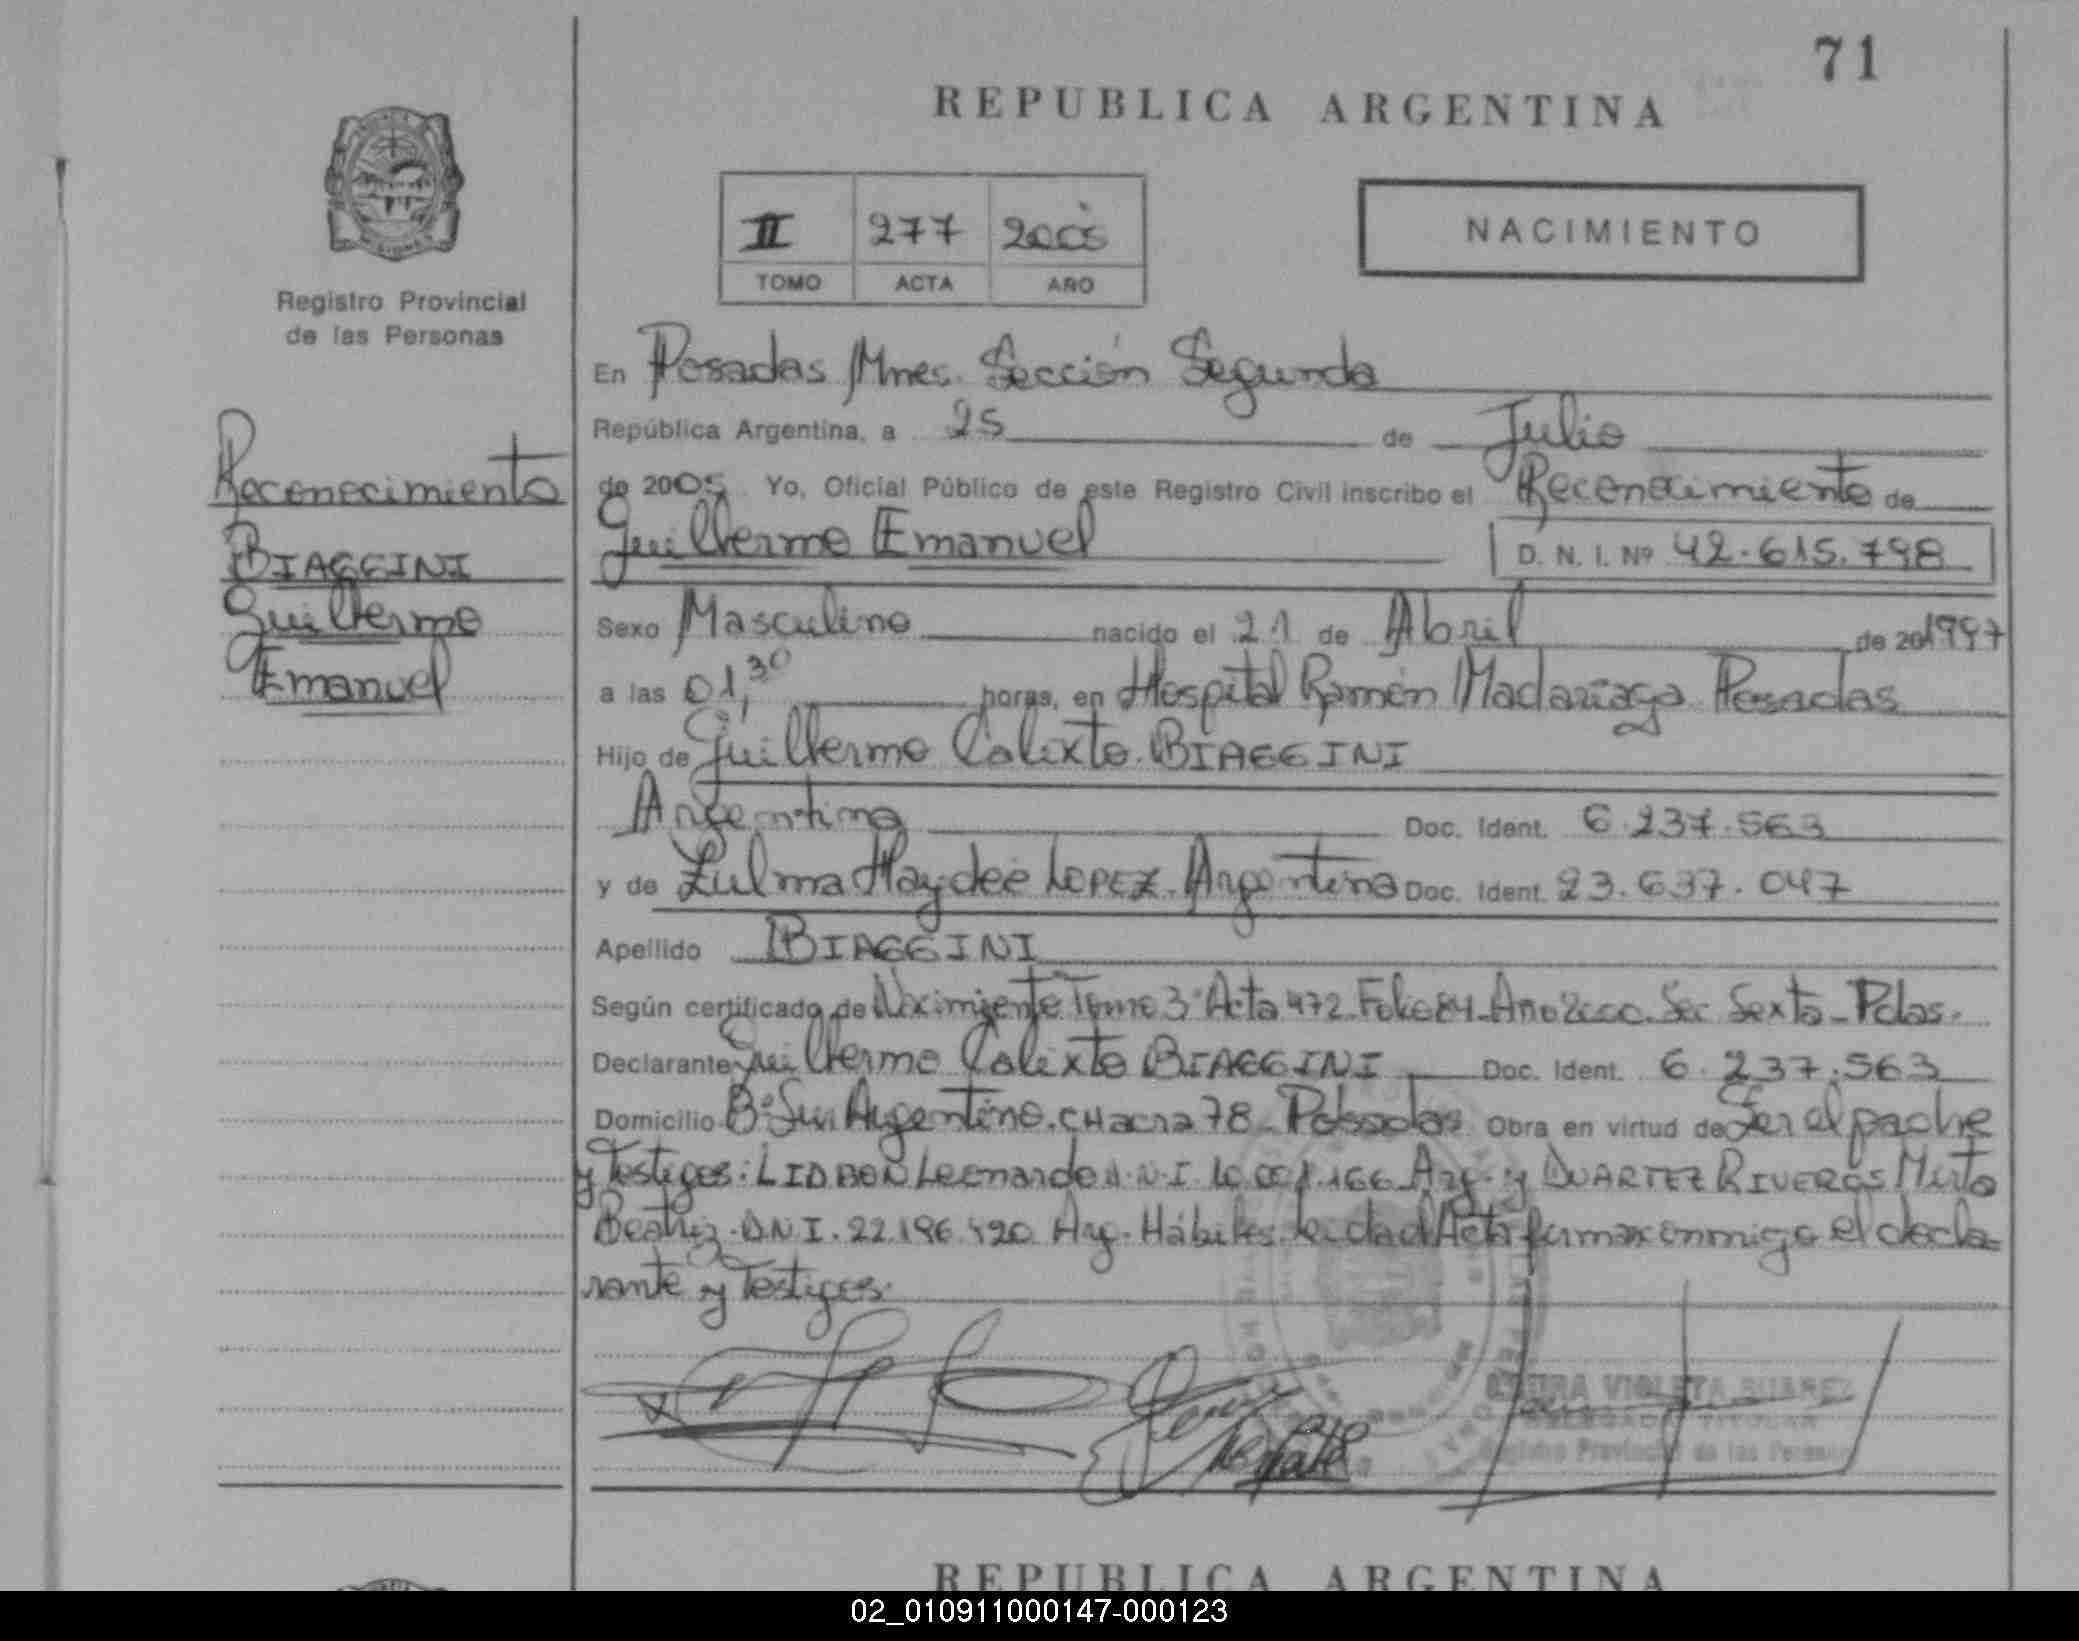 71
REPUBLICA ARGENTINA
II 277 2005
TOMO ACTA AÑO
NACIMIENTO
Registro Provincial
de las Personas
Reconocimiento
BIAGGINI
Guillermo
Emanuel
En Posadas Mnes. Sección Segunda
República Argentina, a 25 de Julio
de 2005 Yo, Oficial Público de este Registro Civil inscribo el Reconocimiento de
Guillermo Emanuel D. N. I. Nº 42.615.798
Sexo Masculino nacido el 21 de Abril de 20 1997
a las 01,30 horas, en Hospital Ramón Madariaga Posadas
Hijo de Guillermo Calixto BIAGGINI
Argentino Doc. Ident. 6.237.563
y de Zulma Haydée LOPEZ. Argentina Doc. Ident. 23.637.047
Apellido BIAGGINI
Según certificado de Nacimiento Tomo 3º Acta 472 Folio 84 Año 2000 Sec Sexta Pdas.
Declarante Guillermo Calixto BIAGGINI Doc. Ident. 6.237.563
Domicilio Bº Sur Argentino. CHacra 78 Posadas Obra en virtud de Ser el padre
y Testigos: Leonardo D.N.I. 10.001.166 Arg. y DUARTEZ RIVEROS Mirta
Beatriz D.N.I. 22.196.420 Arg. Hábiles. Leída el Acta firman conmigo el decla-
rante y Testigos.
VIOLETA SUAREZ
DELEGADA TITULAR
Registro Provincial de las Personas
REPUBLICA ARGENTINA
02_010911000147-000123